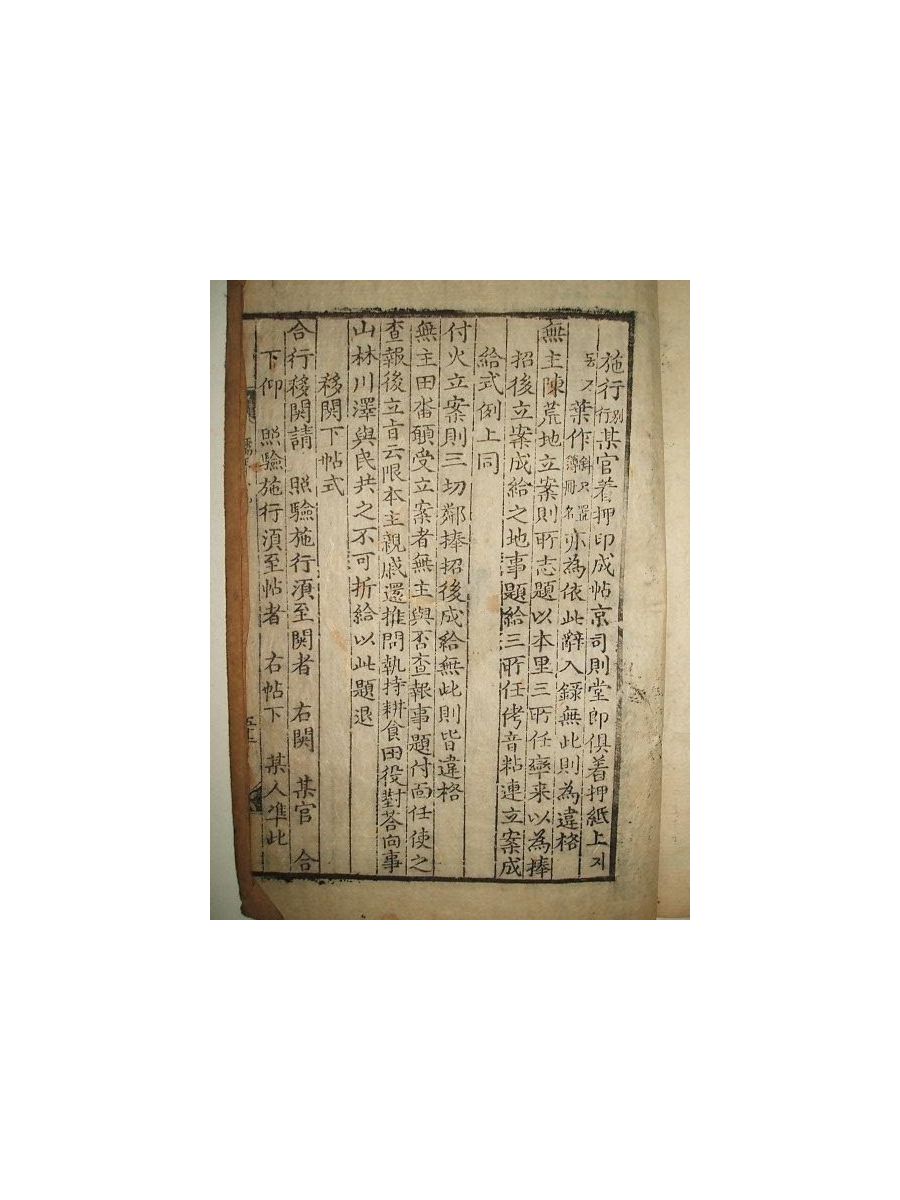 施行別行某官着押印成帖京司則堂郎俱着押紙上지
葉作斜只置簿冊名亦為依此辭入錄無此則為違格
無主陳荒地立案則所志題以本里三所任率来以為捧
招後立案成給之地事題給三所任侤音粘連立案成
給式例上同
付火立案則三切鄰捧招後成給無此則皆違格
無主田畓願受立案者無主與否查報事題付面任使之
查報後立旨云限本主親戚還推問執持耕食田役對答向事
山林川澤與民共之不可折給以此題退
移関下帖式
合行移関請 照驗施行湏至関者 右関 某官 合
下仰 照驗施行湏至帖者 右帖下 某人准此